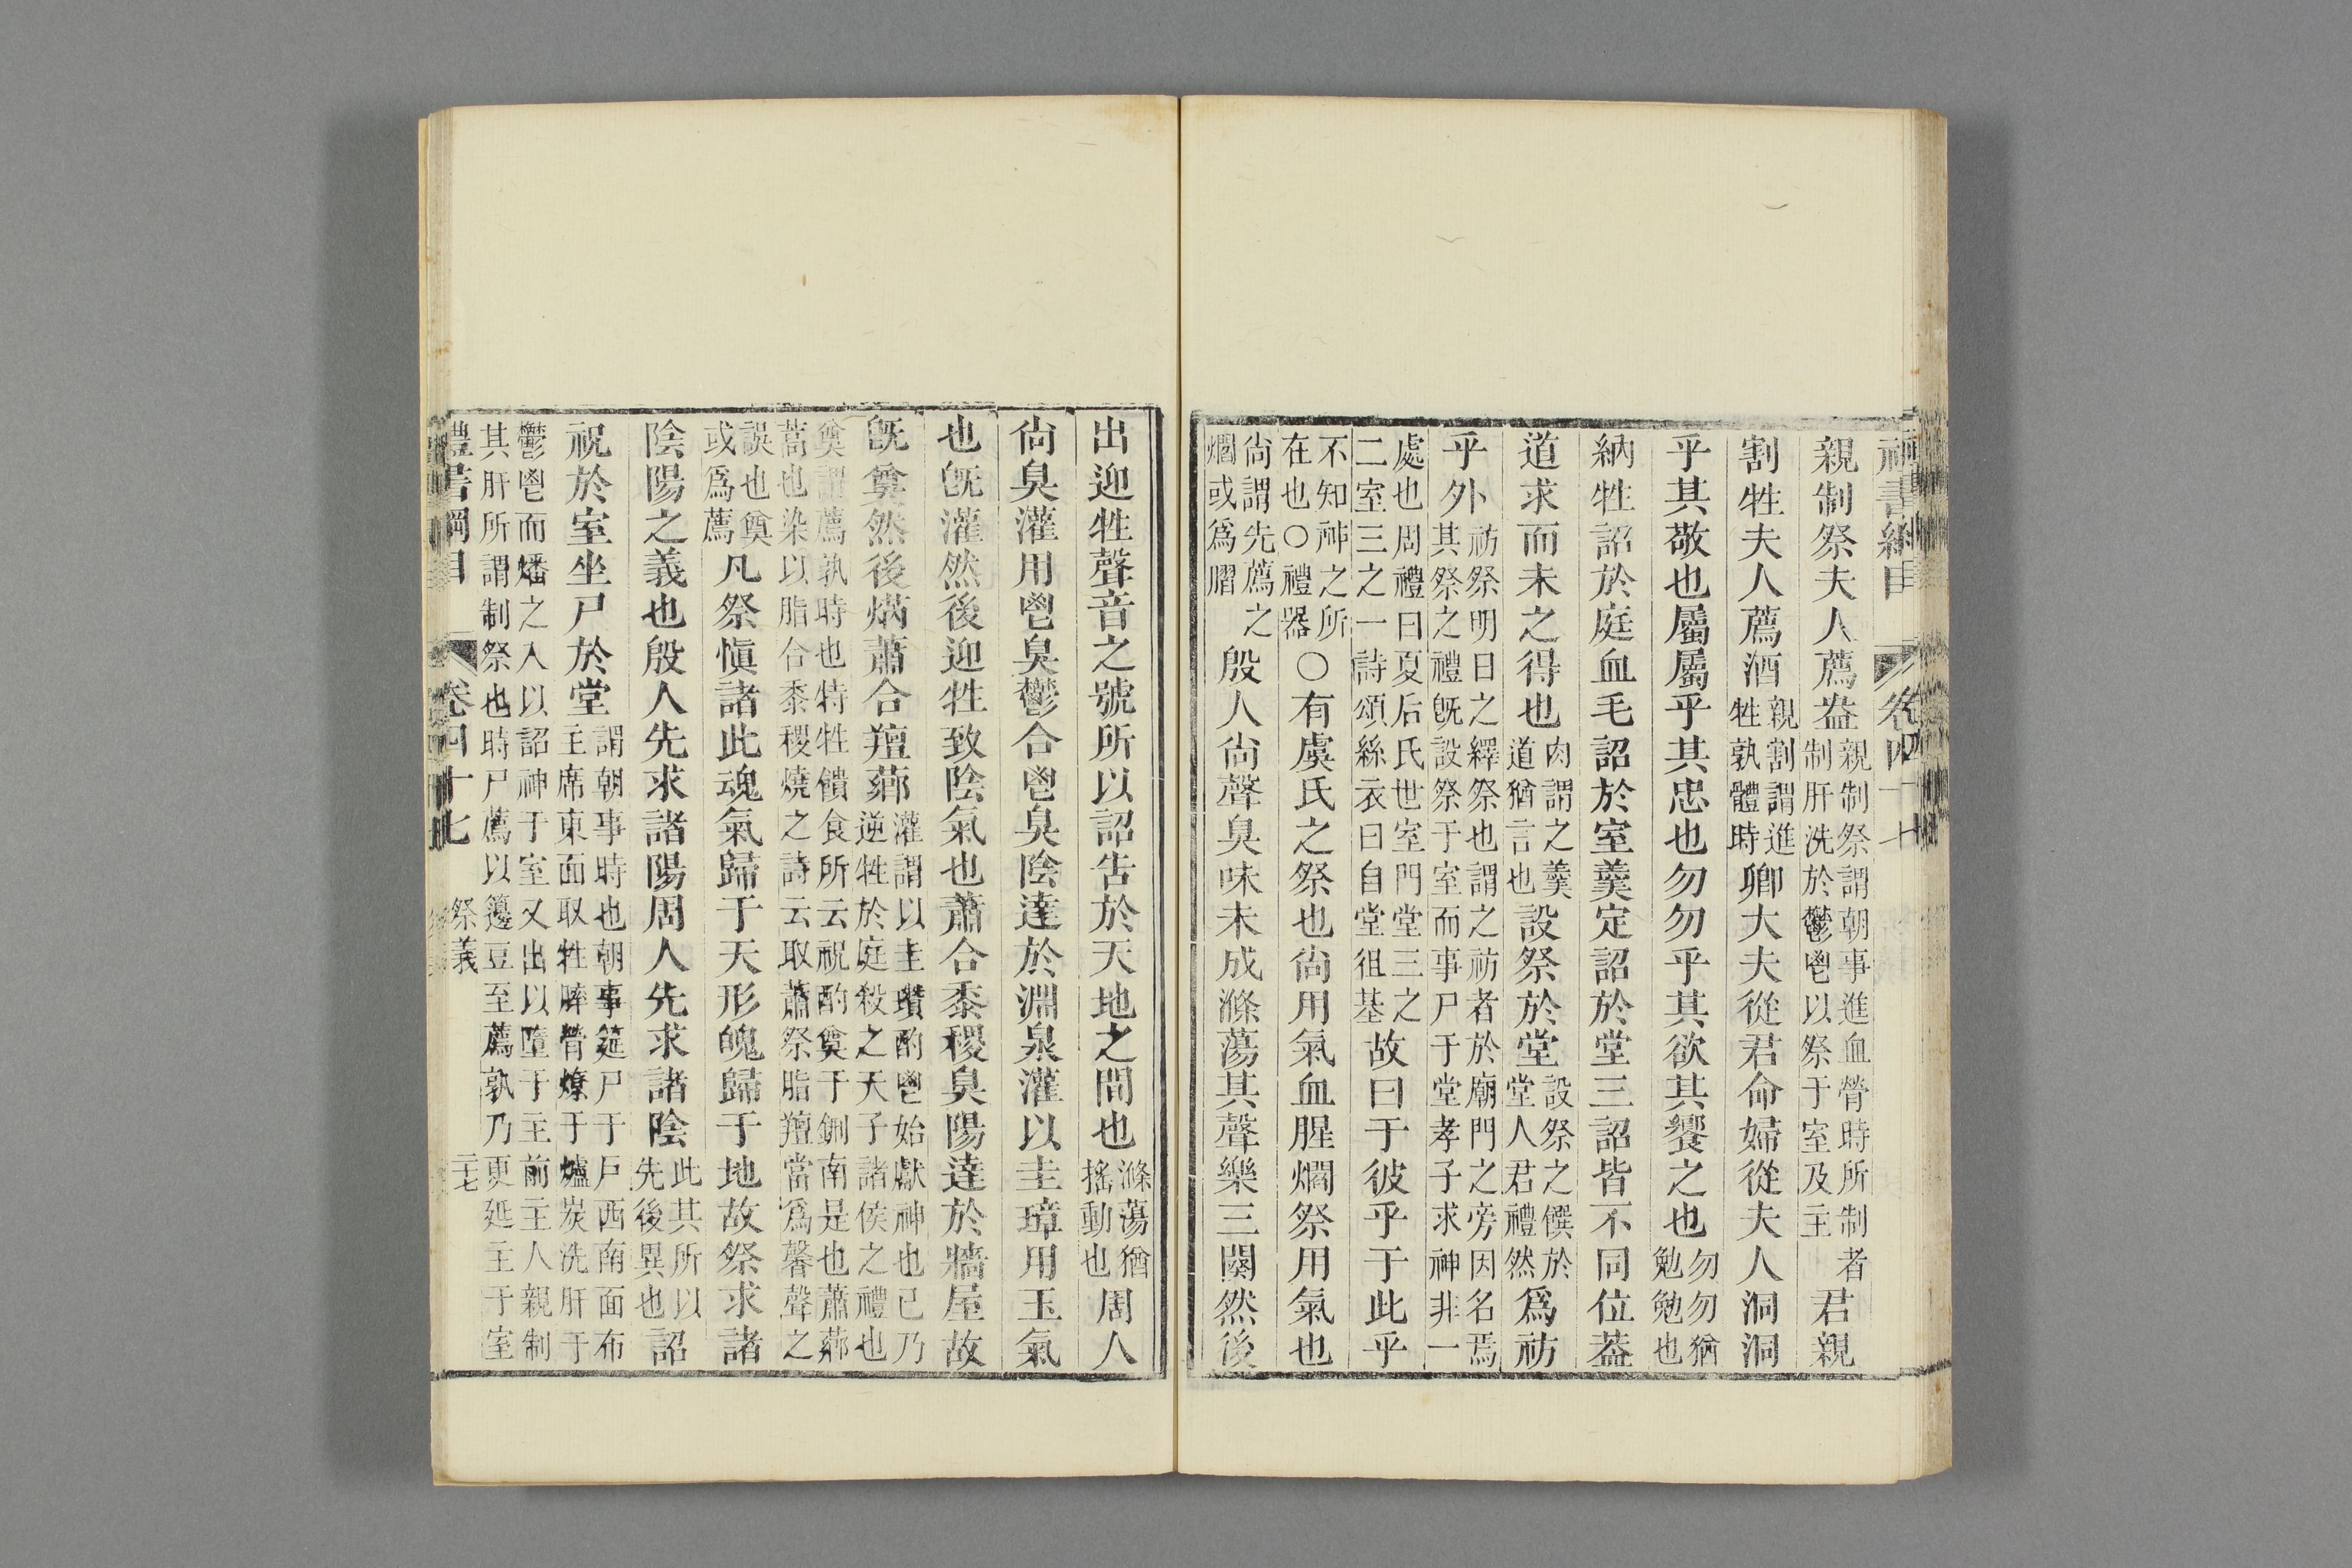 禮書綱目　卷四十七
親制祭夫人薦盎親制祭謂朝事進血膋時所制者制肝洗於鬱鬯以祭于室及主君親
割牲夫人薦酒親割謂進牲孰體時卿大夫從君命婦從夫人洞洞
乎其敬也屬屬乎其忠也勿勿乎其欲其饗之也勿勿猶勉勉也
納牲詔於庭血毛詔於室羹定詔於堂三詔皆不同位葢
道求而未之得也肉謂之羹道猶言也設祭於堂設祭之饌於堂人君禮然爲祊
乎外祊祭明日之繹祭也謂之祊者於廟門之旁因名焉其祭之禮旣設祭于室而事尸于堂孝子求神非一
處也周禮曰夏后氏世室門堂三之二室三之一詩頌絲衣曰自堂徂基故曰于彼乎于此乎
不知神之所在也○禮器○有虞氏之祭也尙用氣血腥爓祭用氣也
尙謂先薦之爓或爲䐹殷人尙聲臭味未成滌蕩其聲樂三闋然後
出迎牲聲音之號所以詔告於天地之間也滌蕩猶搖動也周人
尙臭灌用鬯臭鬱合鬯臭陰達於淵泉灌以圭璋用玉氣
也旣灌然後迎牲致陰氣也蕭合黍稷臭陽達於牆屋故
旣奠然後焫蕭合羶薌灌謂以圭瓚酌鬯始獻神也已乃逆牲於庭殺之天子諸侯之禮也
奠謂薦孰時也特牲饋食所云祝酌奠于鉶南是也蕭薌蒿也染以脂合黍稷燒之詩云取蕭祭脂羶當爲馨聲之
誤也奠或爲薦凡祭愼諸此魂氣歸于天形魄歸于地故祭求諸
陰陽之義也殷人先求諸陽周人先求諸陰此其所以先後異也詔
祝於室坐尸於堂謂朝事時也朝事延尸于戶西南面布主席東面取牲膟膋燎于爐炭洗肝于
鬱鬯而燔之入以詔神于室又出以墮于主前主人親制其肝所謂制祭也時尸薦以籩豆至薦孰乃更延主于室
禮書綱目　卷四十七　祭義　二七